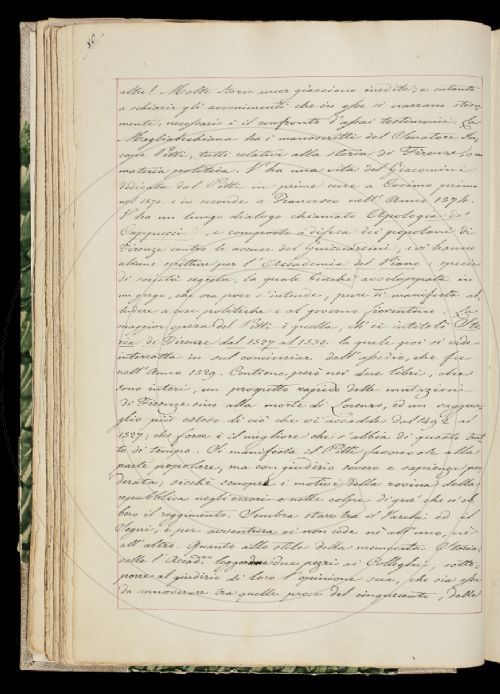 80/
altri! Molte storie ancor giacciono inedite; e intanto
a schiarir gli avvenimenti che in esse si narrano storica-
mente, necessario è il confronto d'assai testimonii. La
Magliabechiana ha i manoscritti del Senatore Ja-
copo Pitti, tutti relativi alla storia di Firenze, o a
materia politica. V'ha una vita del Giacomini
dedicata dal Pitti in prime cure a Cosimo primo
nel 1570. e in seconde a Francesco nell'Anno 1574.
V'ha un lungo dialogo chiamato Apologia de'
Cappucci, e composto a difesa dei popolani di
Firenze contro le accuse del Guicciardini, e vi hanno
alcune scritture per l'Accademia del Piano, specie
di società segreta, la quale benchè avviluppata in
un gergo, che ora poco s'intende, pure si manifesta al-
ludere a cose politiche e al governo fiorentino. La
maggior opera del Pitti è quella, ch'ei intitolò Sto-
ria di Firenze dal 1527 al 1530. la quale poi si vide
interrotta in sul cominciar dell'assedio, che fu
nell'Anno 1529. Contiene però nei due libri, che
sono interi, un prospetto rapido delle mutazioni
di Firenze sino alla morte di Lorenzo, ed un raggua-
glio più esteso di ciò che vi accadde dal 1492 al
1527; che forse è il migliore che s'abbia di questo trat-
to di tempo. Si manifesta il Pitti favorevole alla
parte popolare, ma con giudizio severo e sapienza pon-
derata; sicchè scuopre i motivi della rovina della
repubblica negli errori e nelle colpe di que' che n'eb-
bero il reggimento. Sembra stare tra il Varchi ed il
Segni, e per avventura ei non cede nè all'uno, nè
all'altro. Quanto allo stile della memorata Storia,
volle l'Accad. leggerne due pezzi ai Colleghi, sotto-
porre al giudizio di loro l'opinione sua, che sia essa
da annoverare tra quelle prose del cinquecento, delle